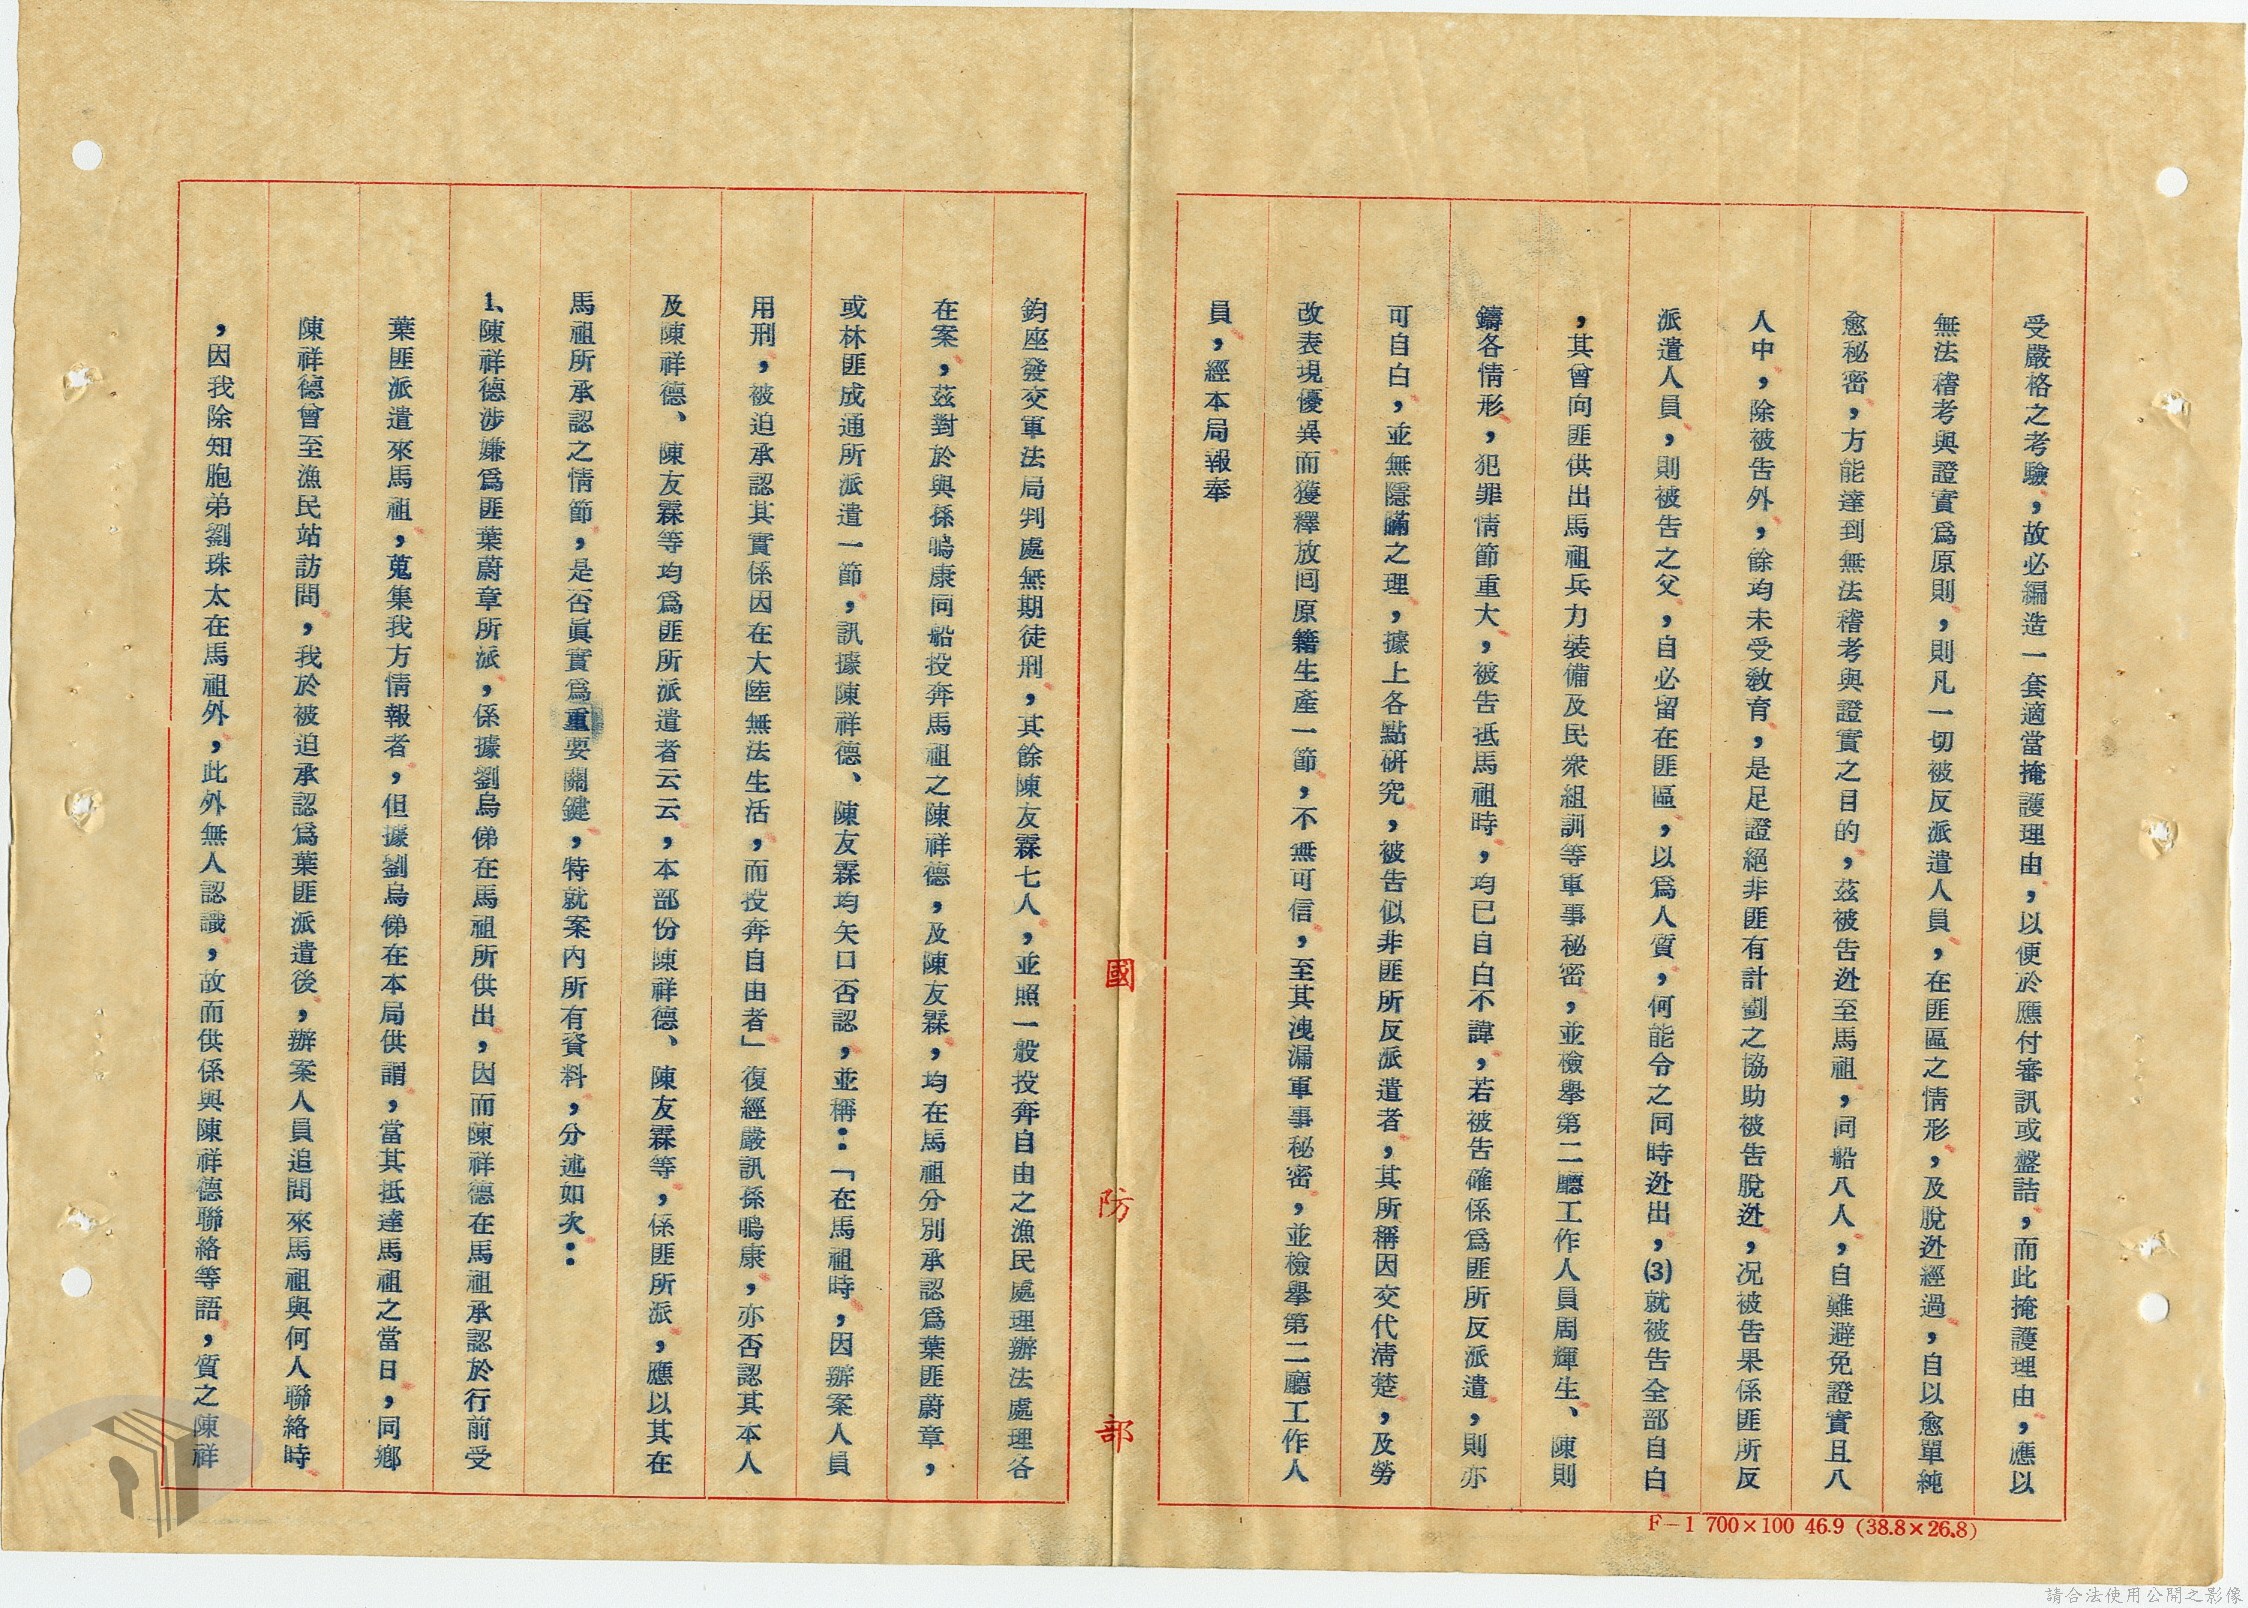 受嚴格之考驗，故必編造一套適當掩護理由，以便於應付審訊或盤詰，而此掩護理由，應以
無法稽考與證實爲原則，則凡一切被反派遣人員，在匪區之情形，及脫逃經過，自以愈單純
愈秘密，方能達到無法稽考與證實之目的，茲被告逃至馬祖，同船八人，自難避免證實且八
人中，除被告外，餘均未受敎育，是足證絕非匪有計劃之協助被告脫逃，况被告果係匪所反
派遣人員，則被告之父，自必留在匪區，以爲人質，何能令之同時逃出，⑶就被告全部自白
，其曾向匪供出馬祖兵力裝備及民衆組訓等軍事秘密，並檢舉第二廳工作人員周輝生、陳則
鑄各情形，犯罪情節重大，被告抵馬祖時，均已自白不諱，若被告確係爲匪所反派遣，則亦
可自白，並無隱瞞之理，據上各點研究，被告似非匪所反派遣者，其所稱因交代清楚，及勞
改表現優異而獲釋放囘原籍生產一節，不無可信，至其洩漏軍事秘密，並檢舉第二廳工作人
員，經本局報奉
鈞座發交軍法局判處無期徒刑，其餘陳友霖七人，並照一般投奔自由之漁民處理辦法處理各
在案，茲對於與孫鳴康同船投奔馬祖之陳祥德，及陳友霖，均在馬祖分別承認爲葉匪蔚章，
或林匪成通所派遣一節，訊據陳祥德、陳友霖均矢口否認，並稱：「在馬祖時，因辦案人員
用刑，被迫承認其實係因在大陸無法生活，而投奔自由者」復經嚴訊孫鳴康，亦否認其本人
及陳祥德、陳友霖等均爲匪所派遣者云云，本部份陳祥德、陳友霖等，係匪所派，應以其在
馬祖所承認之情節，是否眞實爲重要關鍵，特就案內所有資料，分述如次：
1、陳祥德涉嫌爲匪葉蔚章所派，係據劉烏俤在馬祖所供出，因而陳祥德在馬祖承認於行前受
葉匪派遣來馬祖，蒐集我方情報者，但據劉烏俤在本局供謂，當其抵達馬祖之當日，同鄉
陳祥德曾至漁民站訪問，我於被迫承認爲葉匪派遣後，辦案人員追問來馬祖與何人聯絡時
，因我除知胞弟劉珠太在馬祖外，此外無人認識，故而供係與陳祥德聯絡等語，質之陳祥
國防部
F－1 700×100 46.9 (38.8×26.8)
請合法使用公開之影像